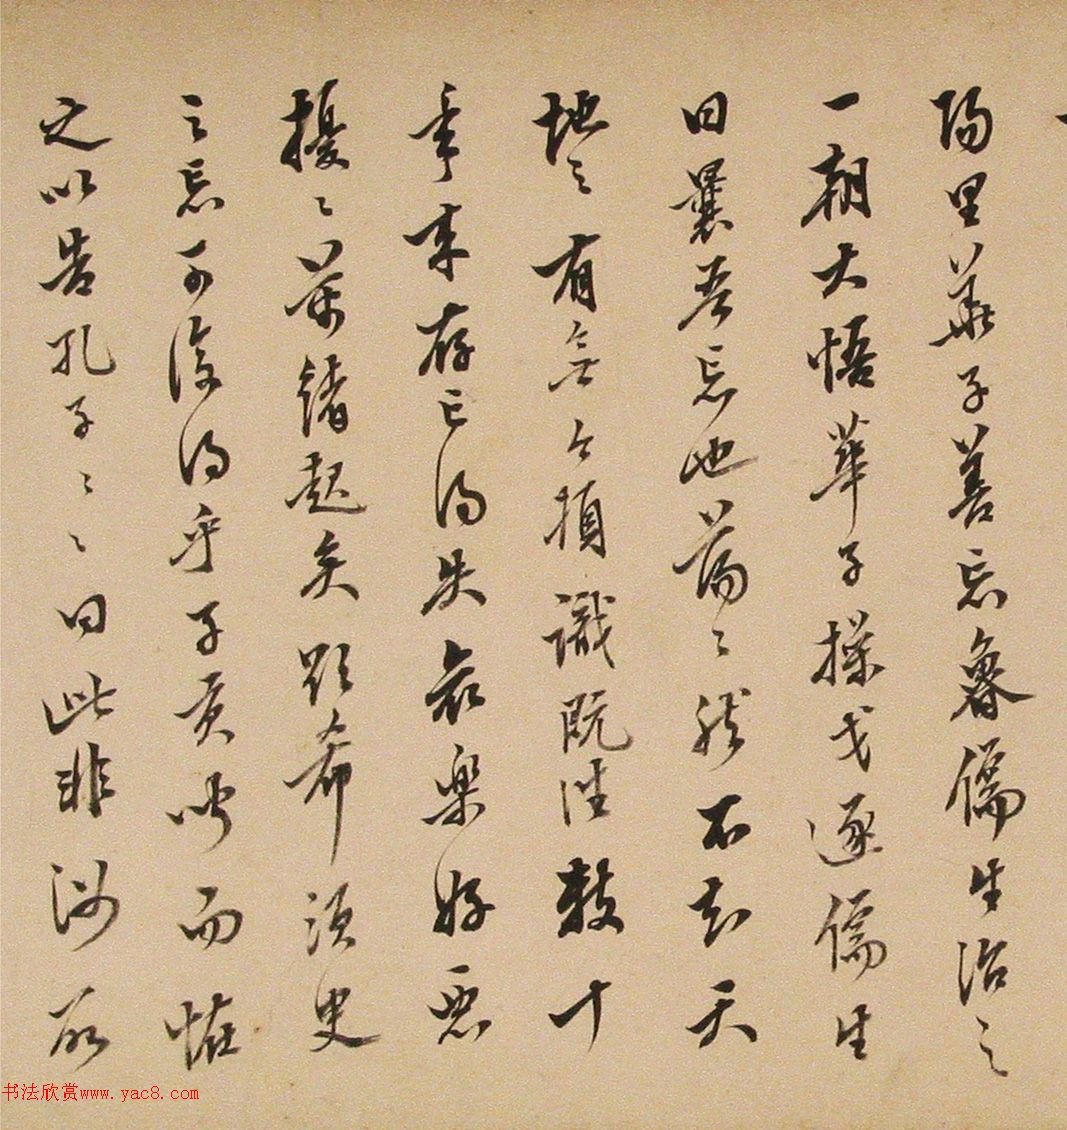 陽里華子善忘魯儒生治之
一朝大悟華子操戈逐儒生
曰曩吾忘也蕩〻然不知天
地之有無今頓識既往數十
年來存亡得失哀樂好惡
擾〻萬緒起矣希須臾
之忘可復得乎子貢聞而怪
之以告孔子〻〻曰此非汝所
书法欣赏www.yac8.com